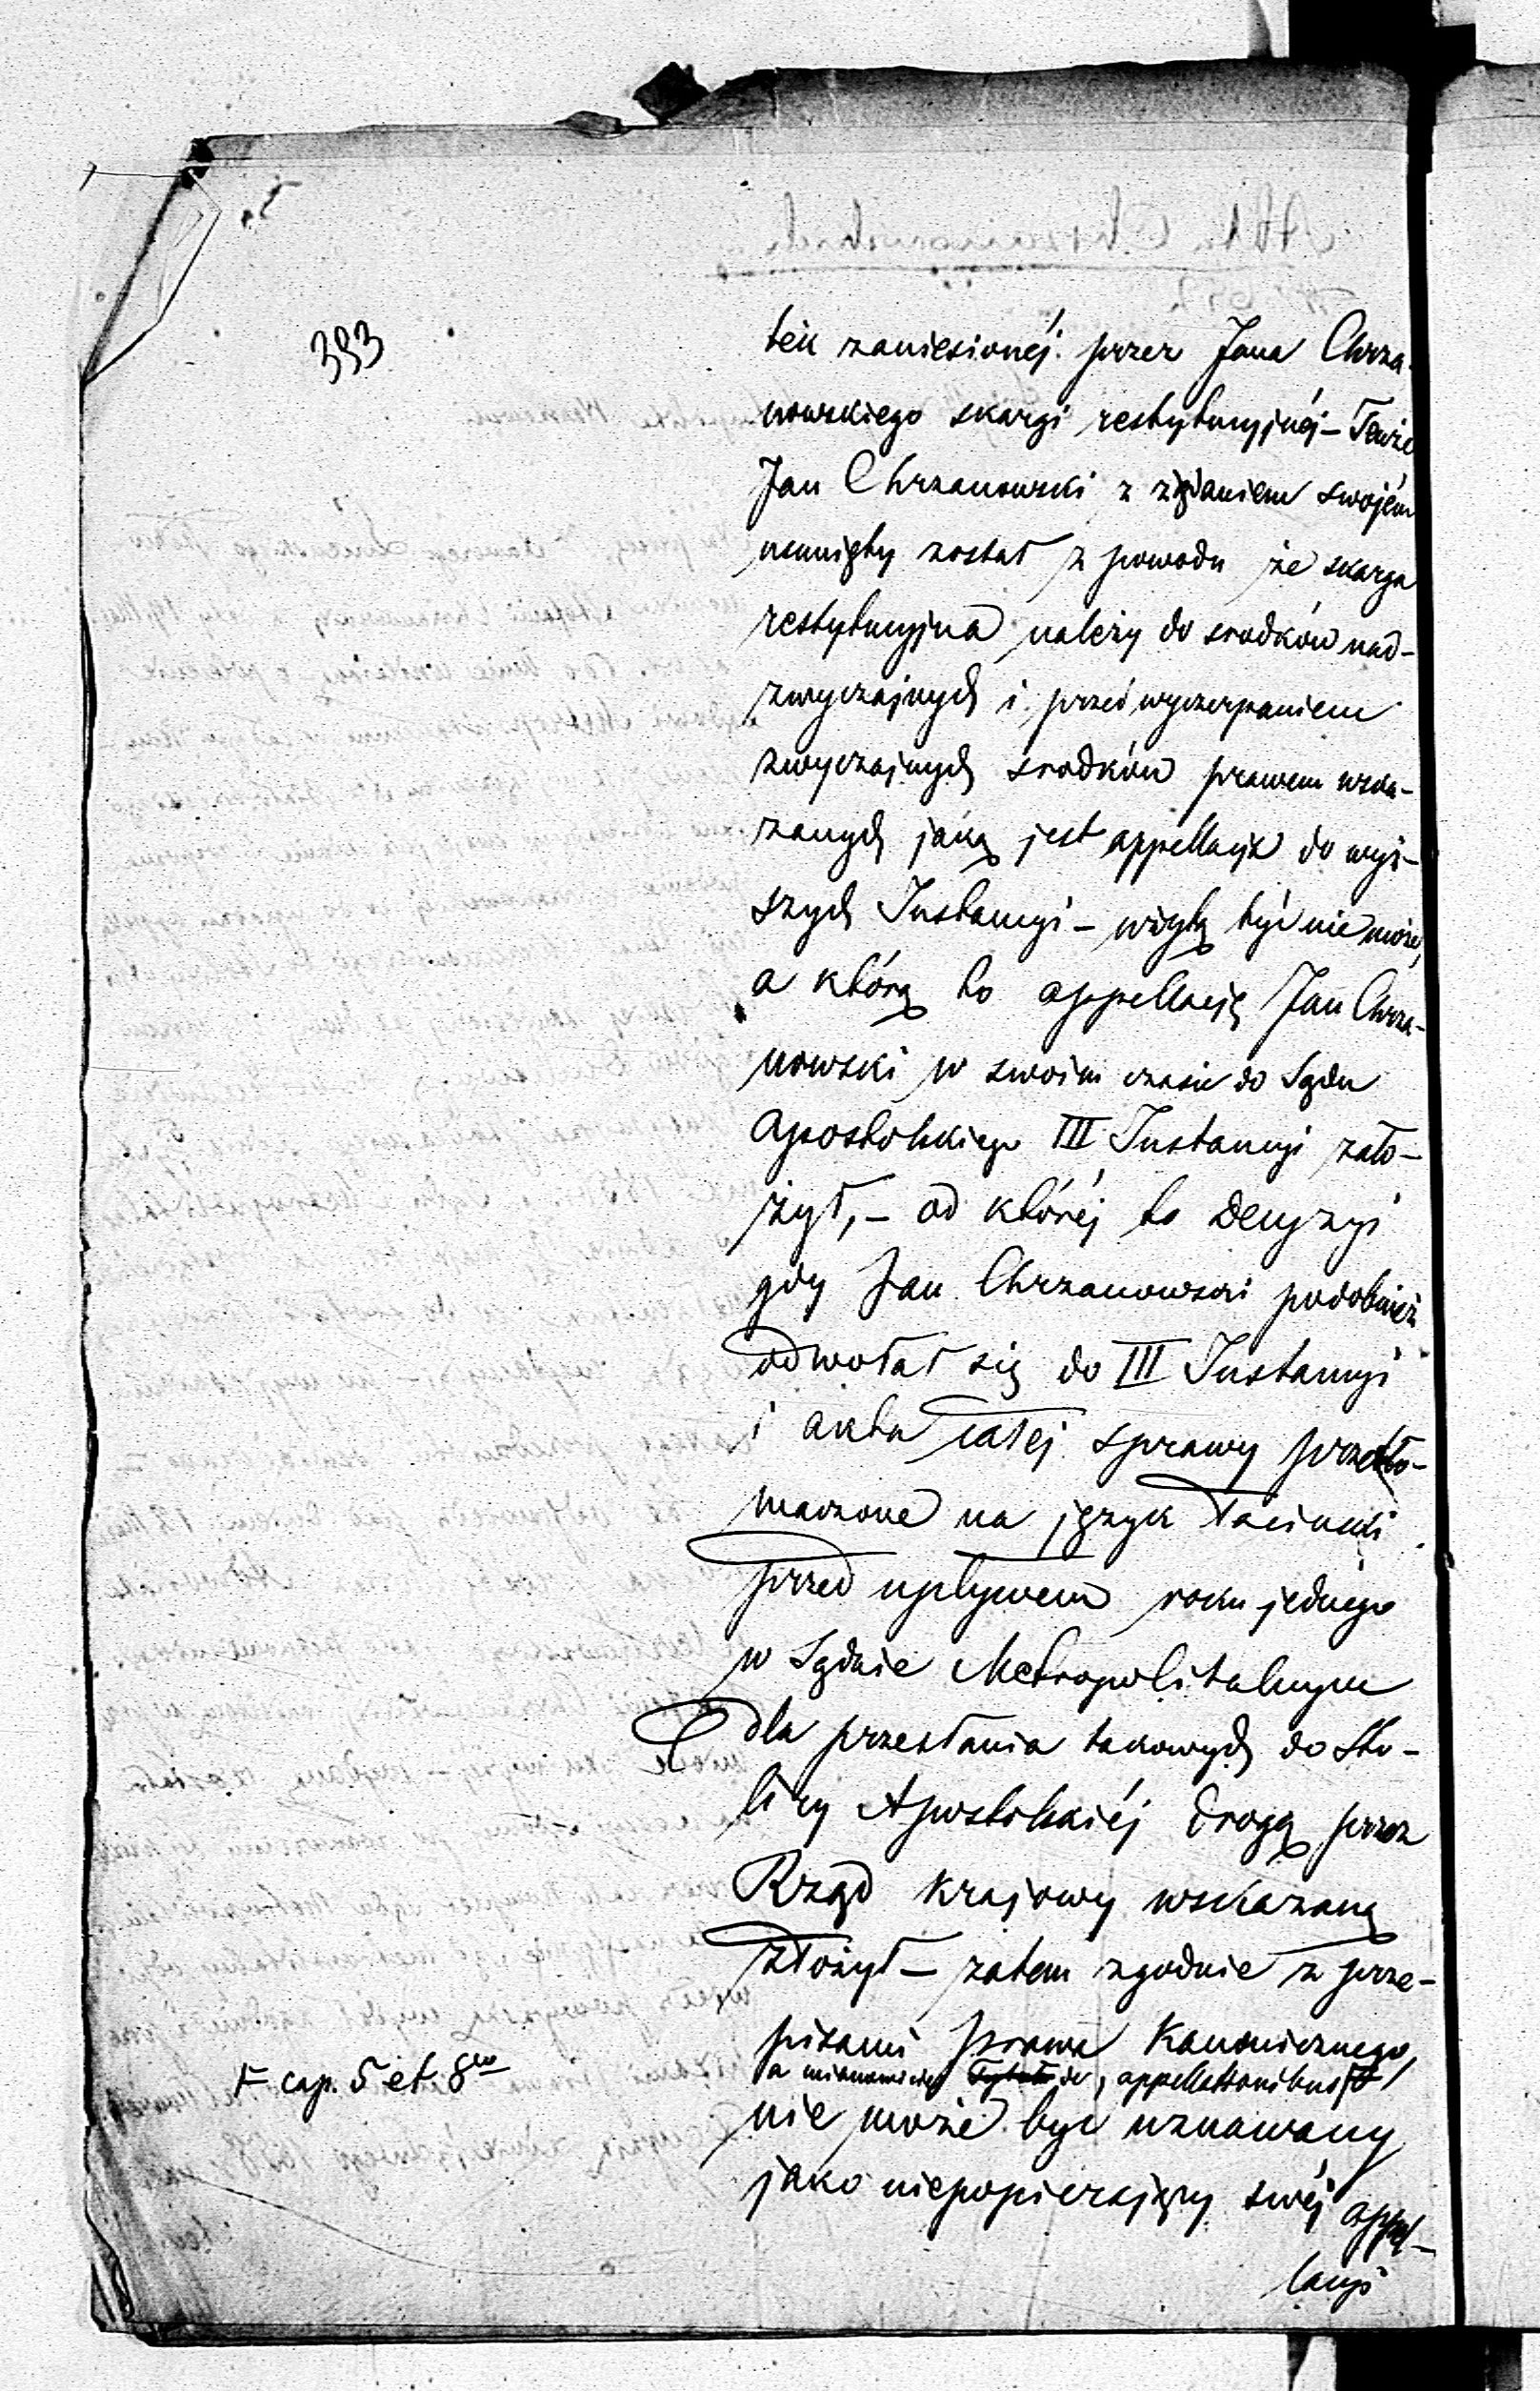 393
tek zaniesionéj przez Jana Chrza-
nowskiego skargi restytucyjnéj – Tenże
Jan Chrzanowski z żądaniem swojém
usunięty został z powodu że skarga
restytucyjna należy do srodków nad-
zwyczajnych i przed wyczerpaniem
zwyczajnych srodków prawem wska-
zanych jaką jest appellacya do wyż-
szych Instancyi – użytą być nie może,
a którą to appellacyę Jan Chrza-
nowski w swoim czasie do Sądu
Apostolskiego III Instancyi zało-
żył, – od któréj to decyzyi
gdy Jan Chrzanowski podobnież
odwołał się do III Instancyi
i akta całéj sprawy przetło-
maczone na język łaciński
przed upływem roku jednego
w Sądzie Metropolitalnym
dla przesłania takowych do Sto-
licy Apostolskiéj drogą przez
Rząd Krajowy wskazaną
złożył – zatem zgodnie z prze-
pisami prawa Kanonicznego,
a mianowicie Tytułu de appellationibus
F cap. 5 et 8vo
nie może być uznawany
jako niepopierający swéj appel-
lacyi